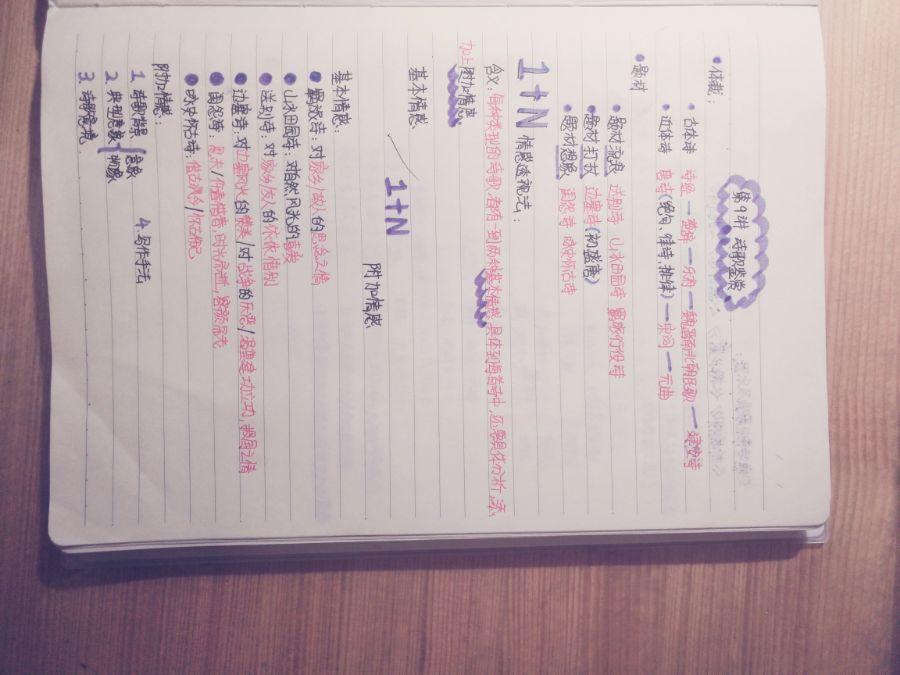 第9讲 诗歌鉴赏
• 体裁：
• 古体诗 诗经 — 楚辞 — 乐府 — 魏晋南北朝民歌 — 建安诗
• 近体诗 唐诗(绝句、律诗、排律) — 宋词 — 元曲
• 题材
• 题材 送别诗 山水田园诗 羁旅行役诗
• 题材 边塞诗(初盛唐)
• 题材 闺怨诗 咏史怀古诗
1+N 情感透视法：
含义：每种类型的诗歌都有一到两种基本情感，具体到每首诗中，还要具体分析，添
加上附加情感
基本情感
1+N
附加情感
基本情感：
• 羁旅诗：对家乡/故人的思念之情
• 山水田园诗：对自然风光的喜爱
• 送别诗：对家乡/友人的依依惜别
• 边塞诗：对边塞风光的赞美/对战争的厌恶/渴望建功立功、报国之情
• 闺怨诗：思夫/伤春惜春、时光易逝、容颜易老
• 咏史怀古诗：借古讽今/怀古伤己
附加情感：
1. 诗歌背景 4. 写作手法
2. 典型意象{意象 物象
3. 诗歌意境